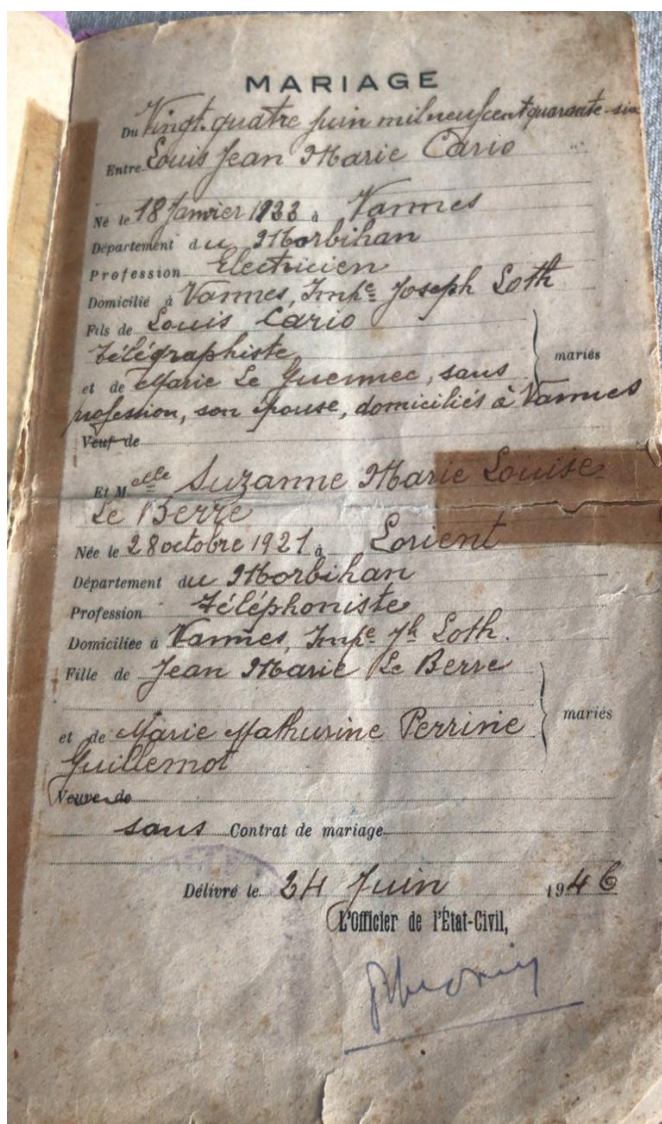 MARIAGE
Du Vingt-quatre juin mil neuf cent quarante-six
Entre Louis Jean Marie Cario
Né le 18 Janvier 1922 à Vannes
Département du Morbihan
Profession Electricien
Domicilié à Vannes, Impse Joseph Loth
Fils de Louis Cario
télégraphiste
mariés
et de Marie Le Guennec, sans
profession, son épouse, domiciliés à Vannes
Veuf de
Et Melle Suzanne Marie Louise
Le Berre
Née le 28 octobre 1921 à Lorient
Département du Morbihan
Profession téléphoniste
Domiciliée à Vannes, Impse Jh Loth.
Fille de Jean Marie Le Berre
mariés
et de Marie Mathurine Perrine
Guillemot
Veuve de
sans Contrat de mariage
Délivré le 24 Juin 1946
L'Officier de l'État-Civil,